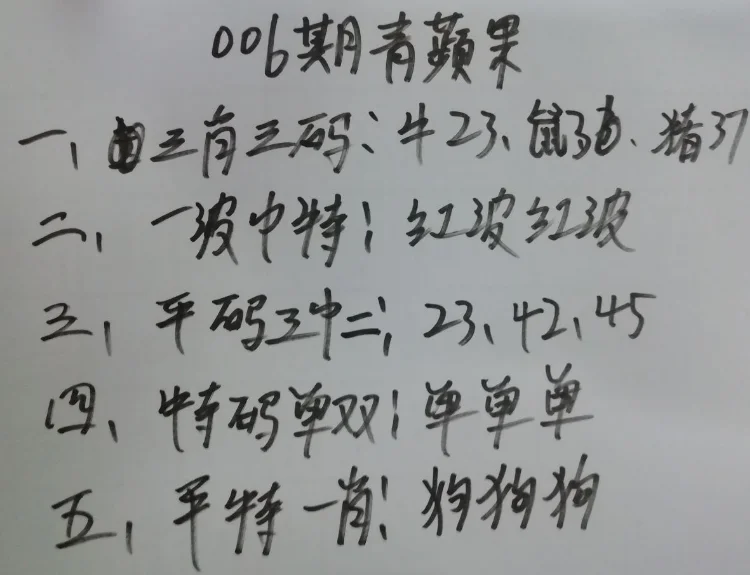 006期青蘋果
一、三肖三码:牛23、鼠3、猪37
二、一波中特:红波红波
三、平码三中二:23、42、45
四、特码单双:单单单
五、平特一肖:狗狗狗